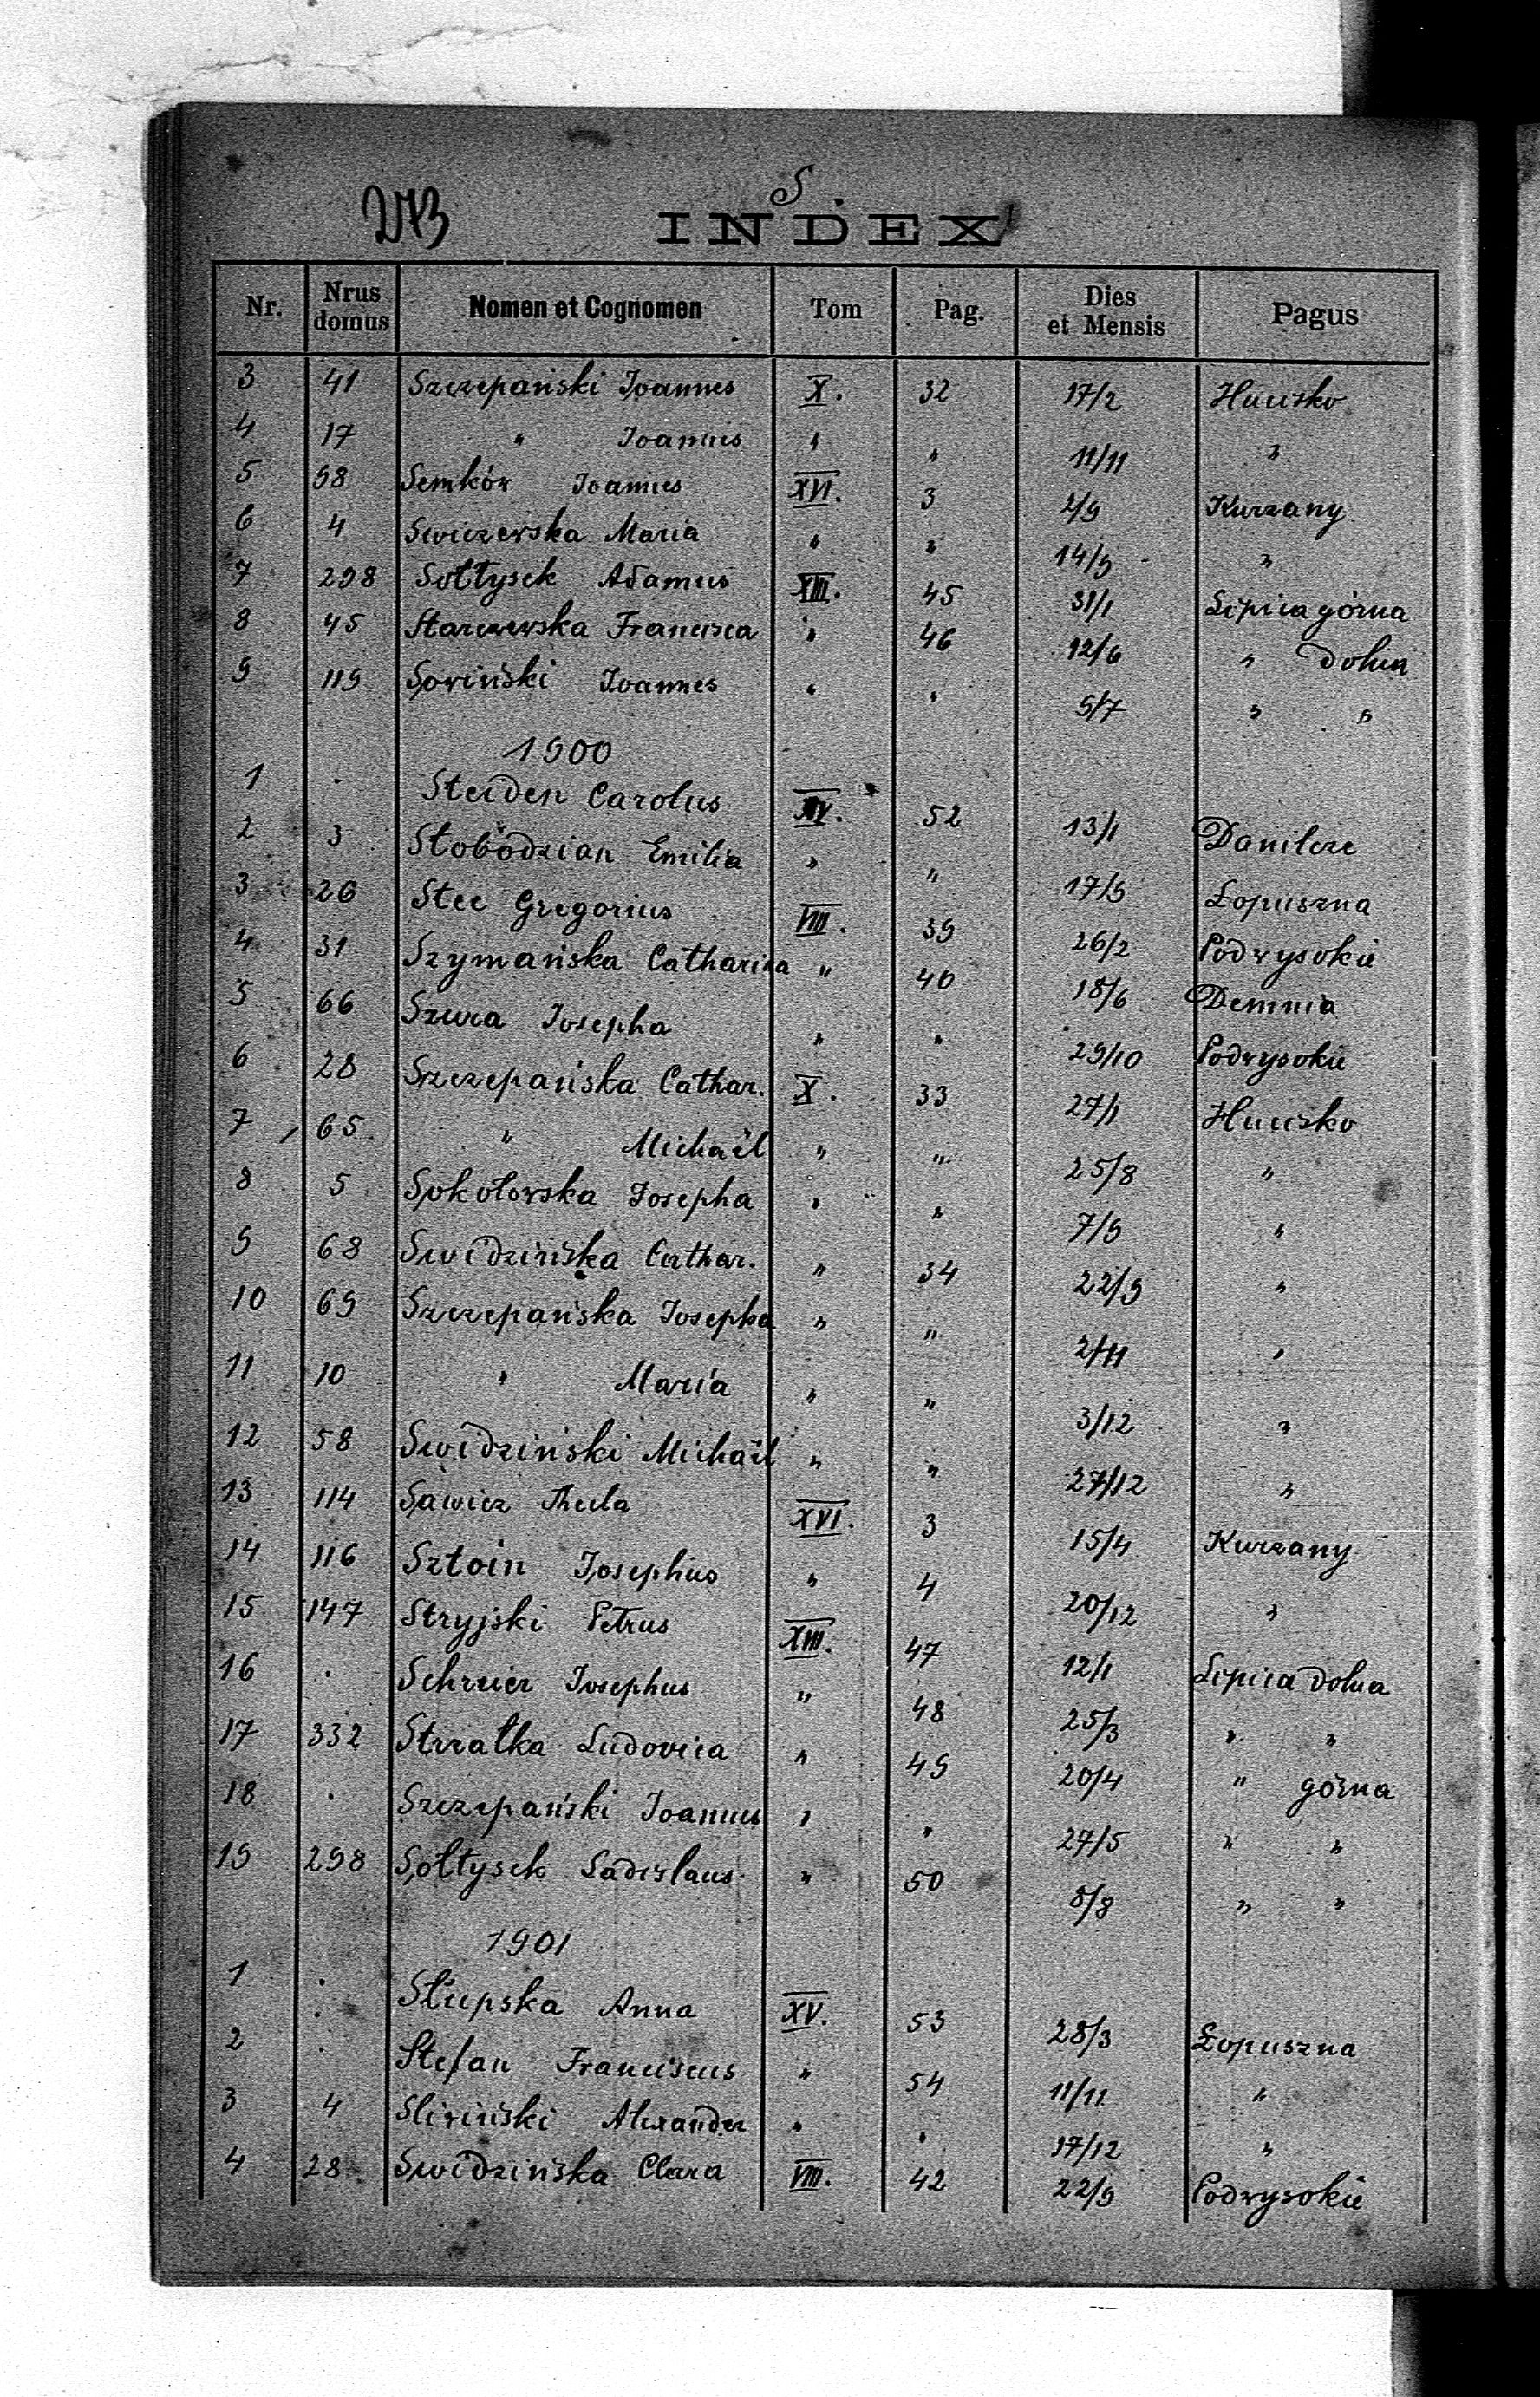 273
S.
INDEX
Nr. Nrus domus Nomen et Cognomen Tom Pag. Dies et Mensis Pagus
3 41 Szczepański Joannes X. 32 17/2 Hucisko
4 17 " Joannes " " 11/11 "
5 98 Semków Joannes XVI. 3 2/9 Kurzany
6 4 Swiczewska Maria " " 14/9 "
7 298 Sołtysek Adamus XIII. 45 31/1 Lipica górna
8 45 Starczewska Francisca " 46 12/6 " dolna
9 119 Sowiński Joannes " " 9/7 " "
1900
1 . Steiden Carolus XV. 52 13/1 Danilcze
2 3 Słobodzian Emilia " " 17/9 Łopuszna
3 26 Stec Gregorius VIII. 39 26/2 Podwysokie
4 31 Szymańska Catharina " 40 18/6 Demnia
5 66 Szwea Josepha " " 29/10 Podwysokie
6 28 Szczepańska Cathar. X. 33 27/1 Hucisko
7 65 " Michaël " " 25/8 "
8 5 Sokołowska Josepha " " 7/9 "
9 68 Swidzińska Cathar. " 34 22/9 "
10 69 Szczepańska Josepha " " 2/11 "
11 10 " Maria " " 3/12 "
12 58 Swidziński Michaël " " 27/12 "
13 114 Sawicz Thecla XVI. 3 15/4 Kurzany
14 116 Sztoin Josephus " 4 20/12 "
15 147 Stryjski Petrus XIII. 47 12/1 Lipica dolna
16 . Schreier Josephus " 48 25/3 " "
17 332 Strzałka Ludovica " 49 20/4 " górna
18 . Szczepański Joannes " " 27/5 " "
19 298 Sołtysek Ladislaus " 50 8/8 " "
1901
1 . Słupska Anna XV. 53 28/3 Łopuszna
2 . Stefan Franciscus " 54 11/11 "
3 4 Sliwiński Alexander " " 17/12 "
4 28 Swidzińska Clara VIII. 42 22/9 Podwysokie